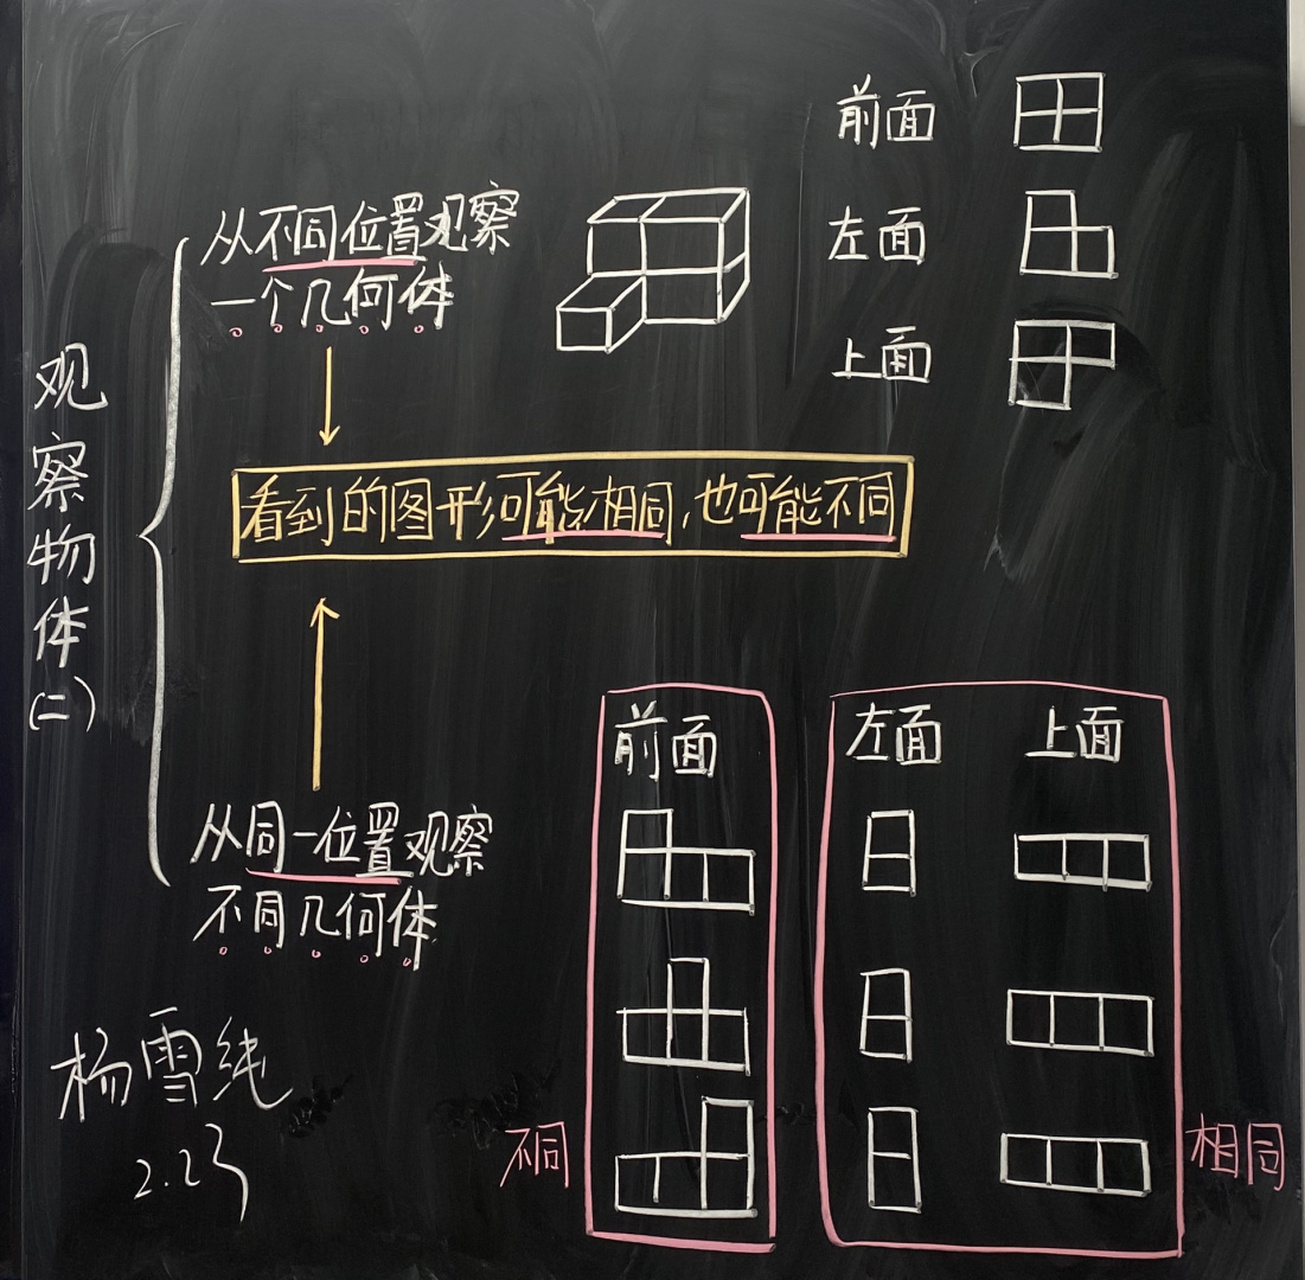 观察物体(二)
从不同位置观察
一个几何体
前面
左面
上面
看到的图形可能相同,也可能不同
从同一位置观察
不同几何体
前面
左面
上面
不同
相同
杨雪纯
2.23